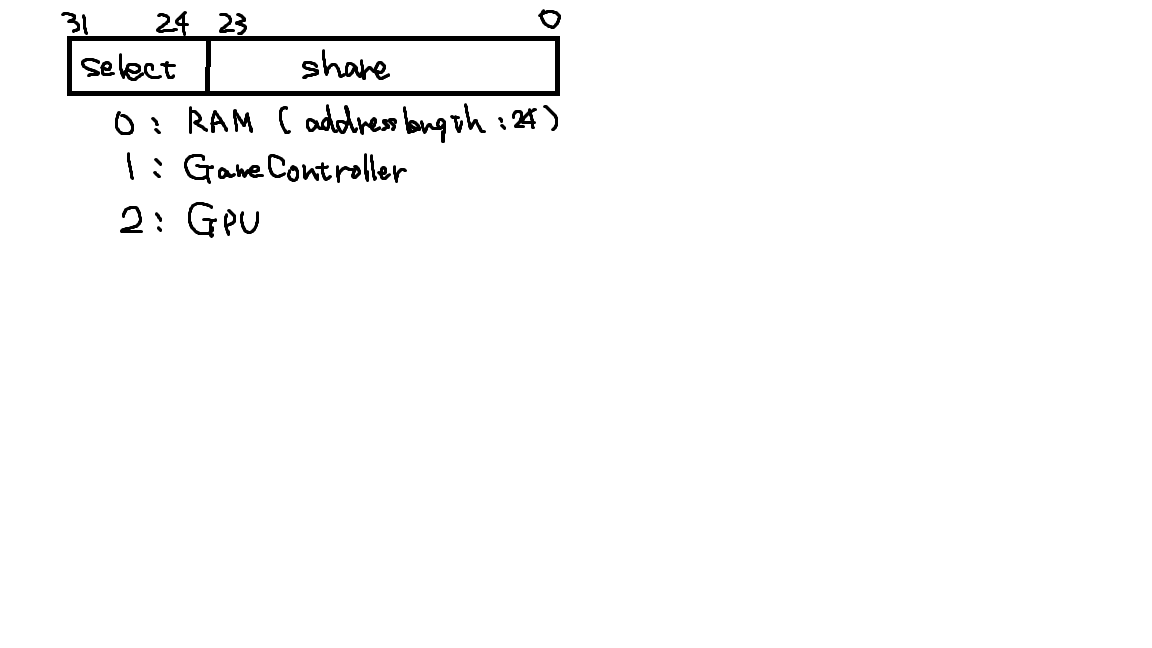 31 24 23 0
select share
0: RAM (addresslength:24)
1: GameController
2: GPU